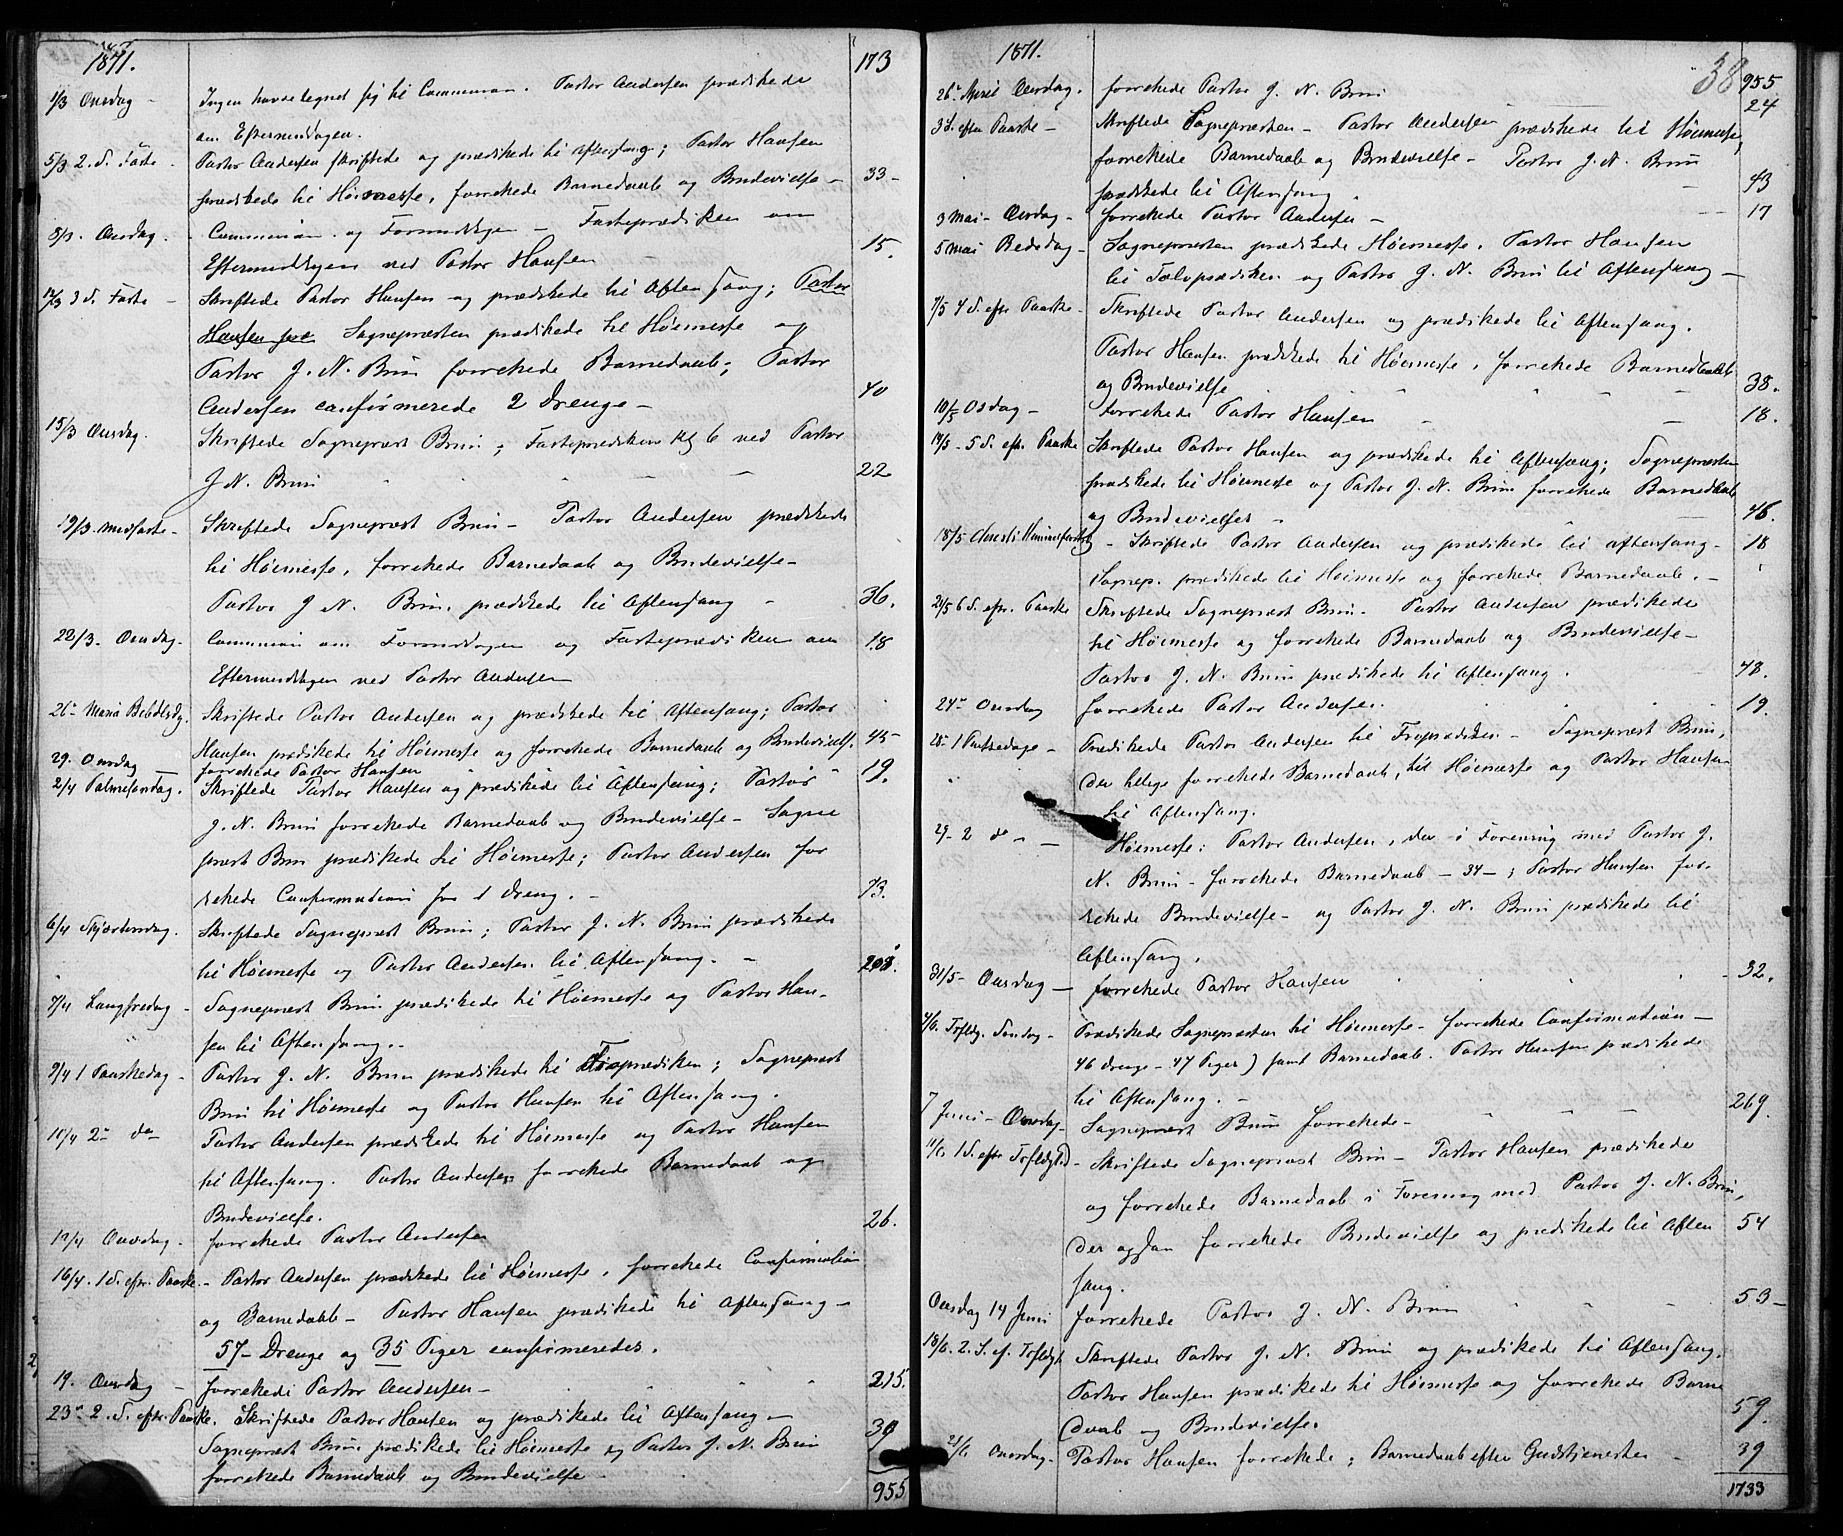 1871.
173
1/3 Onsdag - Ingen havde tegnet sig til Communion. Pastor Andersen prædikede
om Eftermiddagen.
5/3 2. S. Faste - Pastor Andersen skriftede og prædikede til Aftensang; Pastor Hansen
prædikede til Høimesse, forrettede Barnedaab og Brudevielse - 33 -
8/3. Onsdag. - Communion og Formiddagen - Fasteprædiken om
Eftermiddagen ved Pastor Hansen 15.
12/3 3 S. Faste - Skriftede Pastor Hansen og prædikede til Aftensang; Pastor
Hansen præ Sognepræsten prædikede til Høimesse og
Pastor J. N. Brun forrettede Barnedaab; Pastor
Andersen confirmerede 2 Drenge - 40
15/3 Onsdag. Skriftede Sognepræst Brun; Fasteprædiken Kl 6 ved Pastor
J. N. Brun 22
19/3. Midfaste - Skriftede Sognepræst Brun - Pastor Andersen prædikede
til Høimesse, forrettede Barnedaab og Brudevielse -
Pastor J. N. Brun, prædikede til Aftensang - 36.
22/3. Onsdag - Communion om Formiddagen og Fasteprædiken om 18
Eftermiddagen ved Pastor Andersen
26 - Maria Bebdelsdg. Skriftede Pastor Andersen og prædikede til Aftensang; Pastor
Hansen prædikede til Høimesse og forrettede Barnedaab og Brudevielse. 45 -
29. Onsdag - forrettede Pastor Hansen 19.
2/4 Palmesøndag. Skriftede Pastor Hansen og prædikede til Aftensang; Pastor
J. N. Brun forrettede Barnedaab og Brudevielse - Sogne
præst Brun prædikede til Høimesse; Pastor Andersen for
rettede Confirmation for 1 Dreng. - 73.
6/4 Skjærtorsdag. Skriftede Sognepræst Brun; Pastor J. N. Brun prædikede
til Høimesse og Pastor Andersen til Aftensang. - 208.
7/4 Langfredag - Sognepræst Brun prædikede til Høimesse og Pastor Han-
sen til Aftensang. -
9/4 1 Paaskedag - Pastor J. N. Brun prædikede til Froprædiken; Sognepræst
Brun til Høimesse og Pastor Hansen til Aftensang.
10/4 2- do Pastor Andersen prædikede til Høimesse og Pastor Hansen
til Aftensang. Pastor Andersen forrettede Barnedaab og
Brudevielse.
12/4 Onsdag - forrettede Pastor Andersen 26.
16/4. 1 S. efter Paaske - Pastor Andersen prædikede til Høimesse, forrettede Confirmation
og Barnedaab - Pastor Hansen prædikede til Aftensang -
57 - Drenge og 35 Piger confirmeredes.
19. Onsdag - forrettede Pastor Andersen - 215.
23 - 2. S. efter Paaske. Skriftede Pastor Hansen og prædikede til Aftensang - 39
Sognepræst Brun prædikede til Høimesse og Pastor J. N. Brun
forrettede Barnedaab og Brudevielse -
955
1871.
38
955
26 - April Onsdag. forrettede Pastor J. N. Brun 24
3 S. efter Paaske - Skriftede Sognepræsten - Pastor Andersen prædikede til Høimesse,
forrettede Barnedaab og Brudevielse - Pastor J. N. Brun
prædikede til Aftensang - 43
3 Mai - Onsdag - forrettede Pastor Andersen - 17
5 Mai Bededag - Sognepræsten prædikede Høimesse. Pastor Hansen
til Tolvprædiken og Pastor J. N. Brun til Aftensang -
7/5 4 S. efter Paaske - Skriftede Pastor Andersen og prædikede til Aftensang.
Pastor Hansen prædikede til Høimesse, forrettede Barnedaab
og Brudevielse 38.
10/5 Osdag - forrettede Pastor Hansen - 18.
14/5 - 5 S. eft. Paaske Skriftede Pastor Hansen og prædikede til Aftensang; Sognepræsten
prædikede til Høimesse og Pastor J. N. Brun forrettede Barnedaab
og Brudevielser - 46.
18/5 Christi Himmelfartsdg - Skriftede Pastor Andersen og prædikede til Aftensang - 18
Sognep. prædikede til Høimesse og forrettede Barnedaab. -
21/5 6 S. eft. Paaske Skriftede Sognepræst Brun - Pastor Andersen prædikede
til Høimesse og forrettede Barnedaab og Brudevielse -
Pastor J. N. Brun prædikede til Aftensang. 48.
24 - Onsdag forrettede Pastor Andersen. 19.
28 - 1 Pintsedag - Prædikede Pastor Andersen til Froprædiken - Sognepræst Brun,
der tillige forrettede Barnedaab, til Høimesse og Pastor Hansen
til Aftensang.
29 - 2 do - Høimesse: Pastor Andersen, der i Forening med Pastor J.
N. Brun - forrettede Barnedaab - 34 -; Pastor Hansen for-
rettede Brudevielse - og Pastor J. N. Brun prædikede til
Aftensang.
31/5 - Onsdag - forrettede Pastor Hansen - 32.
4/6. Trfldg. Søndag - Prædikede Sognepræsten til Høimesse - forrettede Confirmation -
46 Drenge - 47 Piger) samt Barnedaab. Pastor Hansen prædikede
til Aftensang. -
7 Juni - Onsdag - Sognepræst Brun forrettede - 269.
11/6 1 S. efter Trfldghed - Skriftede Sognepræst Brun - Pastor Hansen prædikede
og forrettede Barnedaab i Forening med Pastor J. N. Brun,
der ogsaa forrettede Brudevielse og prædikede til Aften 54
sang.
Onsdag 14 Juni forrettede Pastor J. N. Brun 53 -
18/6. 2. S. ef. Trfldgh Skriftede Pastor J. N. Brun og prædikede til Aftensang.
Pastor Hansen prædikede til Høimesse og forrettede Barne
daab og Brudevielse. 59.
21/6 Onsdag - Pastor Hansen forrettede; Barnedaab efter Gudstjenesten - 39
1733